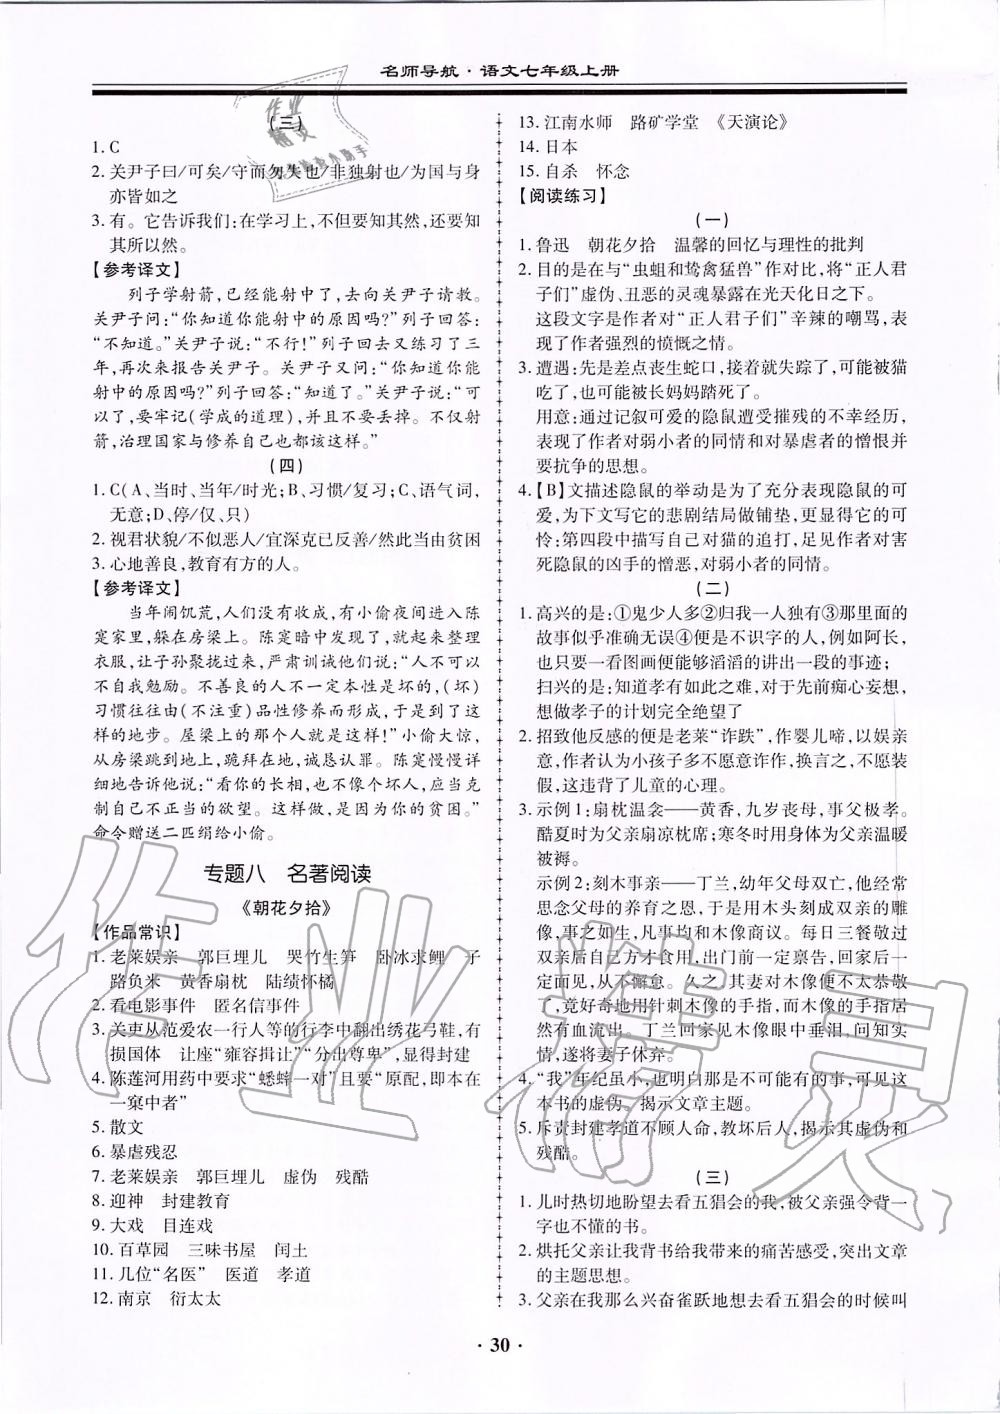 名师导航·语文七年级上册
(三)
1. C
2. 关尹子曰/可矣/守而勿失也/非独射也/为国与身
亦皆如之
3. 有。它告诉我们:在学习上,不但要知其然,还要知
其所以然。
【参考译文】
列子学射箭,已经能射中了,去向关尹子请教。
关尹子问:“你知道你能射中的原因吗?”列子回答:
“不知道。”关尹子说:“不行!”列子回去又练习了三
年,再次来报告关尹子。关尹子又问:“你知道你能
射中的原因吗?”列子回答:“知道了。”关尹子说:“可
以了,要牢记(学成的道理),并且不要丢掉。不仅射
箭,治理国家与修养自己也都该这样。”
(四)
1. C(A、当时、当年/时光;B、习惯/复习;C、语气词,
无意;D、停/仅、只)
2. 视君状貌/不似恶人/宜深克已反善/然此当由贫困
3. 心地善良,教育有方的人。
【参考译文】
当年闹饥荒,人们没有收成,有小偷夜间进入陈
寔家里,躲在房梁上。陈寔暗中发现了,就起来整理
衣服,让子孙聚拢过来,严肃训诫他们说:“人不可以
不自我勉励。不善良的人不一定本性是坏的,(坏)
习惯往往由(不注重)品性修养而形成,于是到了这
样的地步。屋梁上的那个人就是这样!”小偷大惊,
从房梁跳到地上,跪拜在地,诚恳认罪。陈寔慢详
细地告诉他说:“看你的长相,也不像个坏人,应自己
克制自己不正当的欲望。这样做,是因为你的贫困。”
命令赠送二匹绢给小偷。
专题八 名著阅读
《朝花夕拾》
【作品常识】
1. 老莱娱亲 郭巨埋儿 哭竹生笋 卧冰求鲤 子
路负米 黄香扇枕 陆绩怀橘
2. 看电影事件 匿名信事件
3. 关吏从范爱农一行人等的行李中翻出绣花弓鞋,有
损国体 让座“雍容揖让”“分出尊卑”,显得封建
4. 陈莲河用药中要求“蟋蟀一对”且要“原配,即本在
一窠中者”
5. 散文
6. 暴虐残忍
7. 老莱娱亲 郭巨埋儿 虚伪 残酷
8. 迎神 封建教育
9. 大戏 目连戏
10. 百草园 三味书屋 闰土
11. 几位“名医” 医道 孝道
12. 南京 衍太太
13. 江南水师 路矿学堂 《天演论》
14. 日本
15. 自杀 怀念
【阅读练习】
(一)
1. 鲁迅 朝花夕拾 温馨的回忆与理性的批判
2. 目的是在与“虫蛆和鸷禽猛兽”作对比,将“正人君
子们”虚伪、丑恶的灵魂暴露在光天化日之下。
这段文字是作者对“正人君子们”辛辣的嘲骂,表
现了作者强烈的愤慨之情。
3. 遭遇:先是差点丧生蛇口,接着就失踪了,可能被猫
吃了,也可能被长妈妈踏死了。
用意:通过记叙可爱的隐鼠遭受摧残的不幸经历,
表现了作者对弱小者的同情和对暴虐者的憎恨并
要抗争的思想。
4. 【B】文描述隐鼠的举动是为了充分表现隐鼠的可
爱,为下文写它的悲剧结局做铺垫,更显得它的可
怜;第四段中描写自己对猫的追打,足见作者对害
死隐鼠的凶手的憎恶,对弱小者的同情。
(二)
1. 高兴的是:①鬼少人多②归我一人独有③那里面的
故事似乎准确无误④便是不识字的人,例如阿长,
也只要一看图画便能够滔滔的讲出一段的事迹;
扫兴的是:知道孝有如此之难,对于先前痴心妄想,
想做孝子的计划完全绝望了
2. 招致他反感的便是老莱“诈跌”,作婴儿啼,以娱亲
意,作者认为小孩子多不愿意诈作,换言之,不愿装
假,这违背了儿童的心理。
3. 示例1:扇枕温衾——黄香,九岁丧母,事父极孝。
酷夏时为父亲扇凉枕席;寒冬时用身体为父亲温暖
被褥。
示例2:刻木事亲——丁兰,幼年父母双亡,他经常
思念父母的养育之恩,于是用木头刻成双亲的雕
像,事之如生,凡事均和木像商议。每日三餐敬过
双亲后自己方才食用,出门前一定禀告,回家后一
定面见,从不懈怠。久之,其妻对木像便不太恭敬
了,竟好奇地用针刺木像的手指,而木像的手指居
然有血流出。丁兰回家见木像眼中垂泪,问知实
情,遂将妻子休弃。
4. “我”年纪虽小,也明白那是不可能有的事,可见这
本书的虚伪,揭示文章主题。
5. 斥责封建孝道不顾人命,教坏后人,揭示其虚伪和
残酷。
(三)
1. 儿时热切地盼望去看五猖会的我,被父亲强令背一
字也不懂的书。
2. 烘托父亲让我背书给我带来的痛苦感受,突出文章
的主题思想。
3. 父亲在我那么兴奋雀跃地想去看五猖会的时候叫
·30·
作业精灵